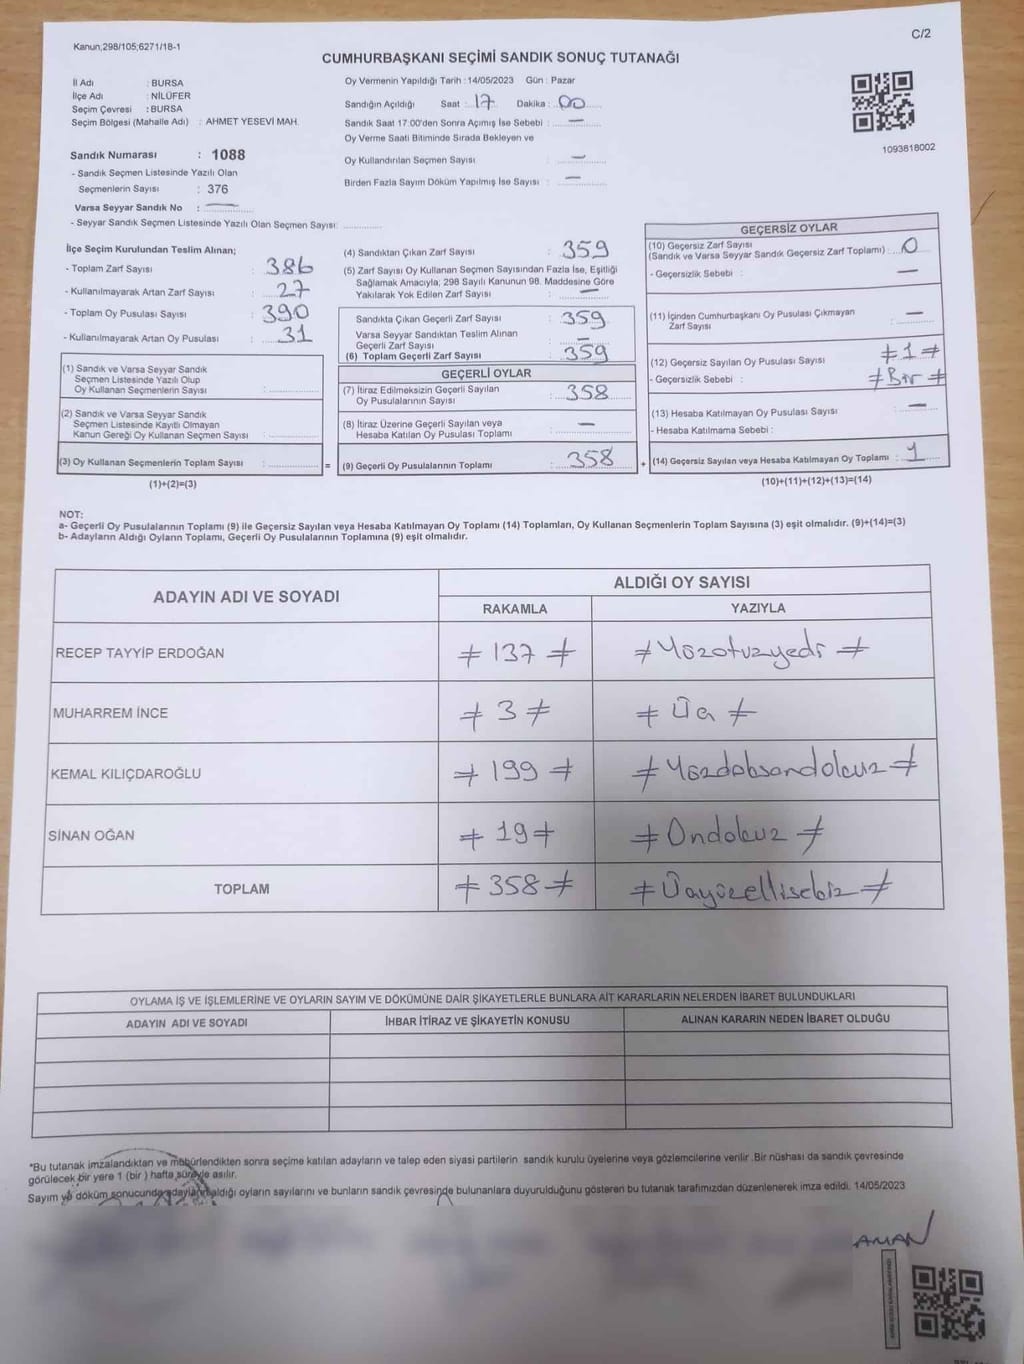 Kanun,298/105;6271/18-1
C/2
CUMHURBAŞKANI SEÇİMİ SANDIK SONUÇ TUTANAĞI
İl Adı : BURSA
İlçe Adı : NİLÜFER
Seçim Çevresi : BURSA
Seçim Bölgesi (Mahalle Adı) : AHMET YESEVİ MAH.
Sandık Numarası : 1088
- Sandık Seçmen Listesinde Yazılı Olan
Seçmenlerin Sayısı : 376
Varsa Seyyar Sandık No : —
- Seyyar Sandık Seçmen Listesinde Yazılı Olan Seçmen Sayısı: ............
Oy Vermenin Yapıldığı Tarih : 14/05/2023 Gün : Pazar
Sandığın Açıldığı Saat : 17 Dakika : 00
Sandık Saat 17:00'den Sonra Açımış İse Sebebi : —
Oy Verme Saati Bitiminde Sırada Bekleyen ve
Oy Kullandırılan Seçmen Sayısı : —
Birden Fazla Sayım Döküm Yapılmış İse Sayısı : —
1093818002
İlçe Seçim Kurulundan Teslim Alınan;
- Toplam Zarf Sayısı : 386
- Kullanılmayarak Artan Zarf Sayısı : 27
- Toplam Oy Pusulası Sayısı : 390
- Kullanılmayarak Artan Oy Pusulası : 31
(1) Sandık ve Varsa Seyyar Sandık
Seçmen Listesinde Yazılı Olup
Oy Kullanan Seçmenlerin Sayısı : ............
(2) Sandık ve Varsa Seyyar Sandık
Seçmen Listesinde Kayıtlı Olmayan
Kanun Gereği Oy Kullanan Seçmen Sayısı : ............
(3) Oy Kullanan Seçmenlerin Toplam Sayısı : ............ =
(1)+(2)=(3)
(4) Sandıktan Çıkan Zarf Sayısı : 359
(5) Zarf Sayısı Oy Kullanan Seçmen Sayısından Fazla İse, Eşitliği
Sağlamak Amacıyla, 298 Sayılı Kanunun 98. Maddesine Göre
Yakılarak Yok Edilen Zarf Sayısı : —
Sandıkta Çıkan Geçerli Zarf Sayısı : 359
Varsa Seyyar Sandıktan Teslim Alınan
Geçerli Zarf Sayısı : —
(6) Toplam Geçerli Zarf Sayısı : 359
GEÇERLİ OYLAR
(7) İtiraz Edilmeksizin Geçerli Sayılan
Oy Pusulalarının Sayısı : 358
(8) İtiraz Üzerine Geçerli Sayılan veya
Hesaba Katılan Oy Pusulası Toplamı : —
(9) Geçerli Oy Pusulalarının Toplamı : 358 +
GEÇERSİZ OYLAR
(10) Geçersiz Zarf Sayısı
(Sandık ve Varsa Seyyar Sandık Geçersiz Zarf Toplamı) : 0
- Geçersizlik Sebebi : —
(11) İçinden Cumhurbaşkanı Oy Pusulası Çıkmayan
Zarf Sayısı : —
(12) Geçersiz Sayılan Oy Pusulası Sayısı ≠ 1 ≠
- Geçersizlik Sebebi : ≠ Bir ≠
(13) Hesaba Katılmayan Oy Pusulası Sayısı : —
- Hesaba Katılmama Sebebi :
(14) Geçersiz Sayılan veya Hesaba Katılmayan Oy Toplamı : 1
(10)+(11)+(12)+(13)=(14)
NOT:
a- Geçerli Oy Pusulalarının Toplamı (9) ile Geçersiz Sayılan veya Hesaba Katılmayan Oy Toplamı (14) Toplamları, Oy Kullanan Seçmenlerin Toplam Sayısına (3) eşit olmalıdır. (9)+(14)=(3)
b- Adayların Aldığı Oyların Toplamı, Geçerli Oy Pusulalarının Toplamına (9) eşit olmalıdır.
ADAYIN ADI VE SOYADI
ALDIĞI OY SAYISI
RAKAMLA YAZIYLA
RECEP TAYYİP ERDOĞAN ≠ 137 ≠ ≠ Yüzotuzyedi ≠
MUHARREM İNCE ≠ 3 ≠ ≠ Üç ≠
KEMAL KILIÇDAROĞLU ≠ 199 ≠ ≠ Yüzdoksandokuz ≠
SİNAN OĞAN ≠ 19 ≠ ≠ Ondokuz ≠
TOPLAM ≠ 358 ≠ ≠ Üçyüzellisekiz ≠
OYLAMA İŞ VE İŞLEMLERİNE VE OYLARIN SAYIM VE DÖKÜMÜNE DAİR ŞİKAYETLERLE BUNLARA AİT KARARLARIN NELERDEN İBARET BULUNDUKLARI
ADAYIN ADI VE SOYADI İHBAR İTİRAZ VE ŞİKAYETİN KONUSU ALINAN KARARIN NEDEN İBARET OLDUĞU
*Bu tutanak imzalandıktan ve mühürlendikten sonra seçime katılan adayların ve talep eden siyasi partilerin sandık kurulu üyelerine veya gözlemcilerine verilir .Bir nüshası da sandık çevresinde
görülecek bir yere 1 (bir ) hafta süreyle asılır.
Sayım ve döküm sonucunda adayların aldığı oyların sayılarını ve bunların sandık çevresinde bulunanlara duyurulduğunu gösteren bu tutanak tarafımızdan düzenlenerek imza edildi. 14/05/2023
AMAN